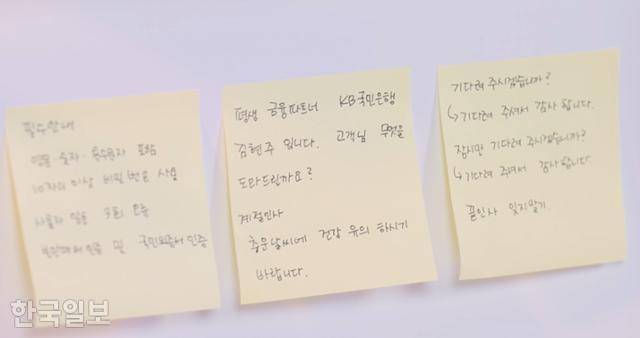 필수안내
영문·숫자·특수문자 포함
10자리 이상 비밀번호 사용
사용자 암호 3회 오류
국민인증서 인증
평생 금융파트너 KB국민은행
김현주 입니다. 고객님 무엇을
도와드릴까요?
계절인사
추운날씨에 건강 유의 하시기
바랍니다.
기다려 주시겠습니까?
↳기다려 주셔서 감사 합니다.
잠시만 기다려 주시겠습니까?
↳기다려 주셔서 감사합니다.
끝인사 잊지말기
한국일보